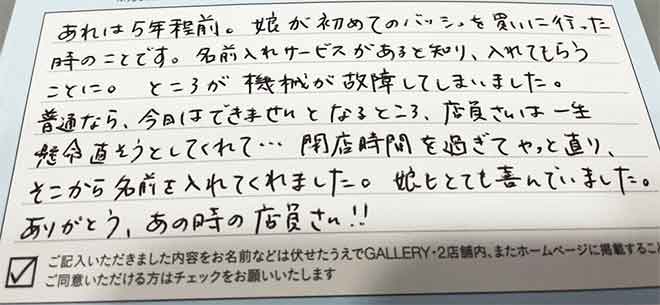 あれは5年程前。娘が初めてのバッシュを買いに行った
時のことです。名前入れサービスがあると知り、入れてもらう
ことに。ところが機械が故障してしまいました。
普通なら、今日はできませんとなるところ、店員さんは一生
懸命直そうとしてくれて…閉店時間を過ぎてやっと直り、
そこから名前を入れてくれました。娘もとても喜んでいました。
ありがとう、あの時の店員さん!!
ご記入いただきました内容をお名前などは伏せたうえでGALLERY・2店舗内、またホームページに掲載するこ
ご同意いただける方はチェックをお願いいたします